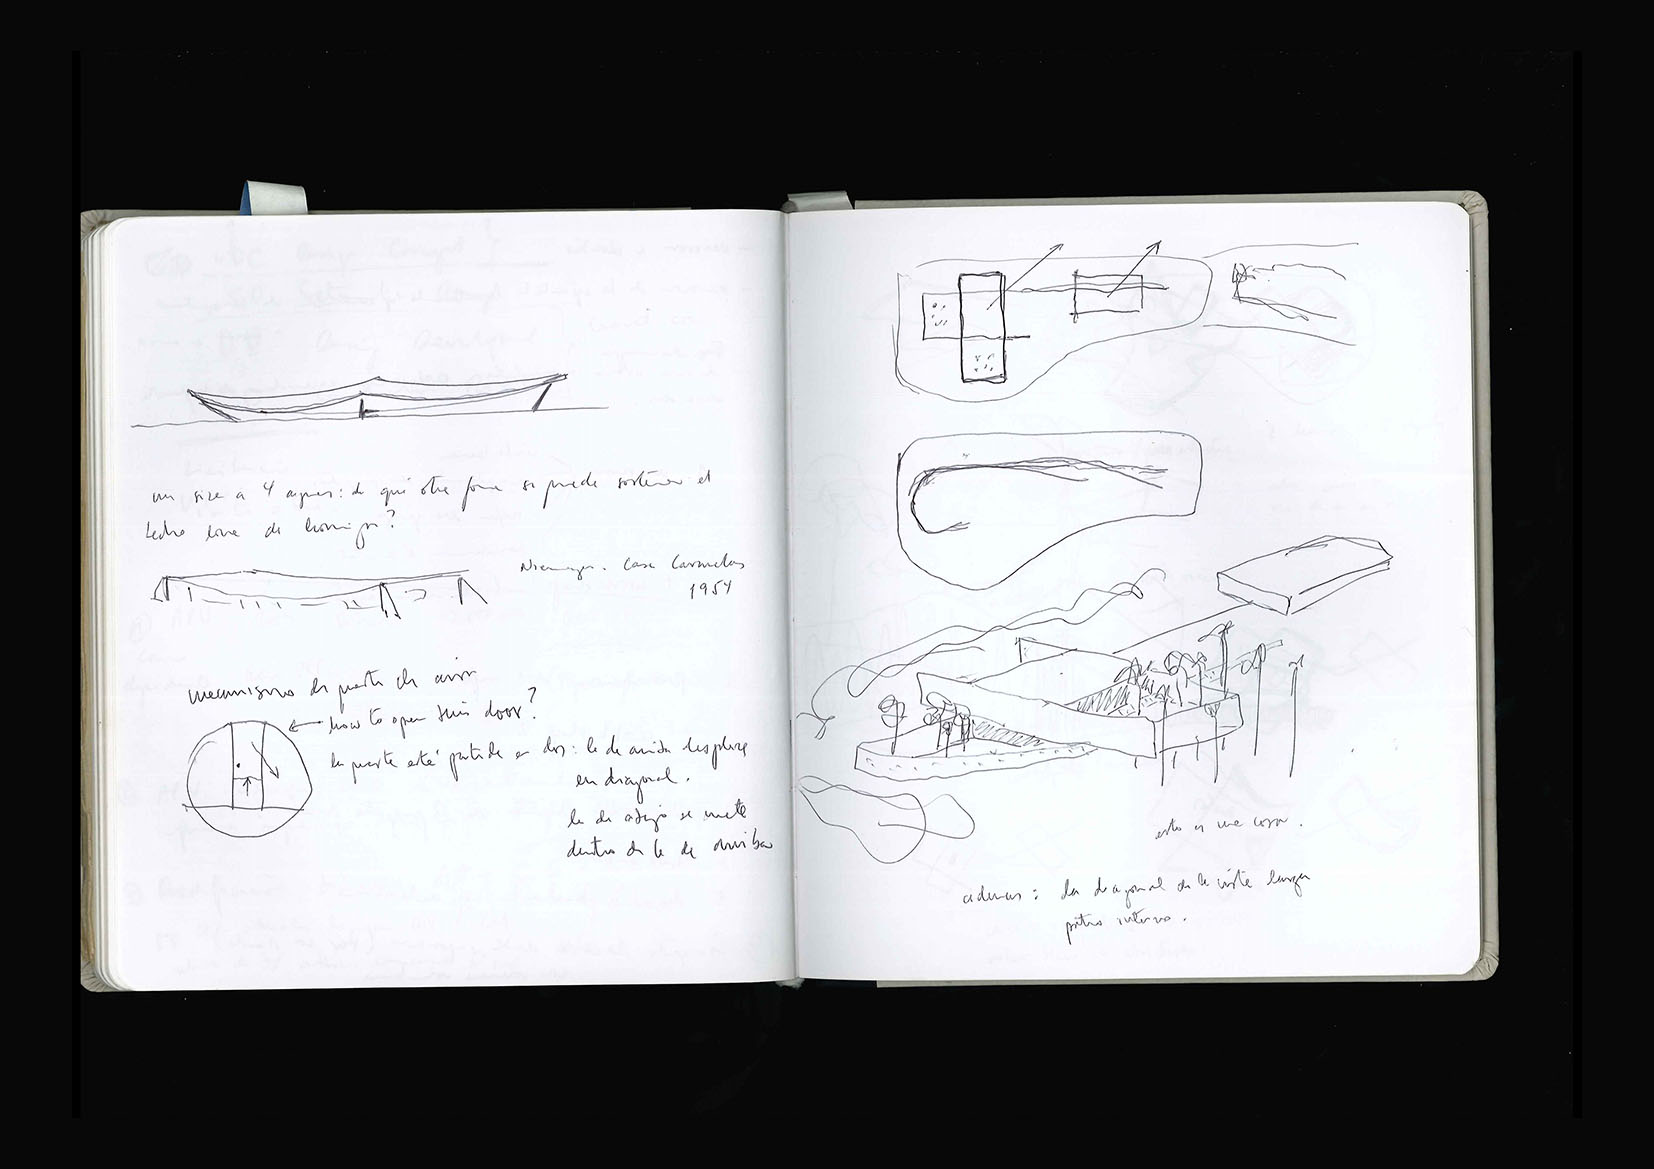 a 4 aguas: de qué otra forma se puede sostener el
techo de hormigón?
Niemeyer. Casa Cavanelas
1954
mecanismo de puerta de avión
how to open this door?
la puerta está partida en dos: la de arriba desplaza
en diagonal.
la de abajo se mete
dentro de la de arriba
esto es una cosa.
además: la diagonal de la vista larga
patios internos.